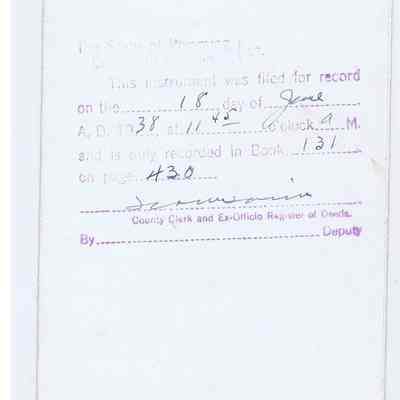 The State of Wyoming } ss.
This instrument was filed for record
on the 18 day of June
A. D. 1938 at 11 45 o'clock a M.
and is duly recorded in Book 131
on page 430
County Clerk and Ex-Officio Register of Deeds.
By Deputy